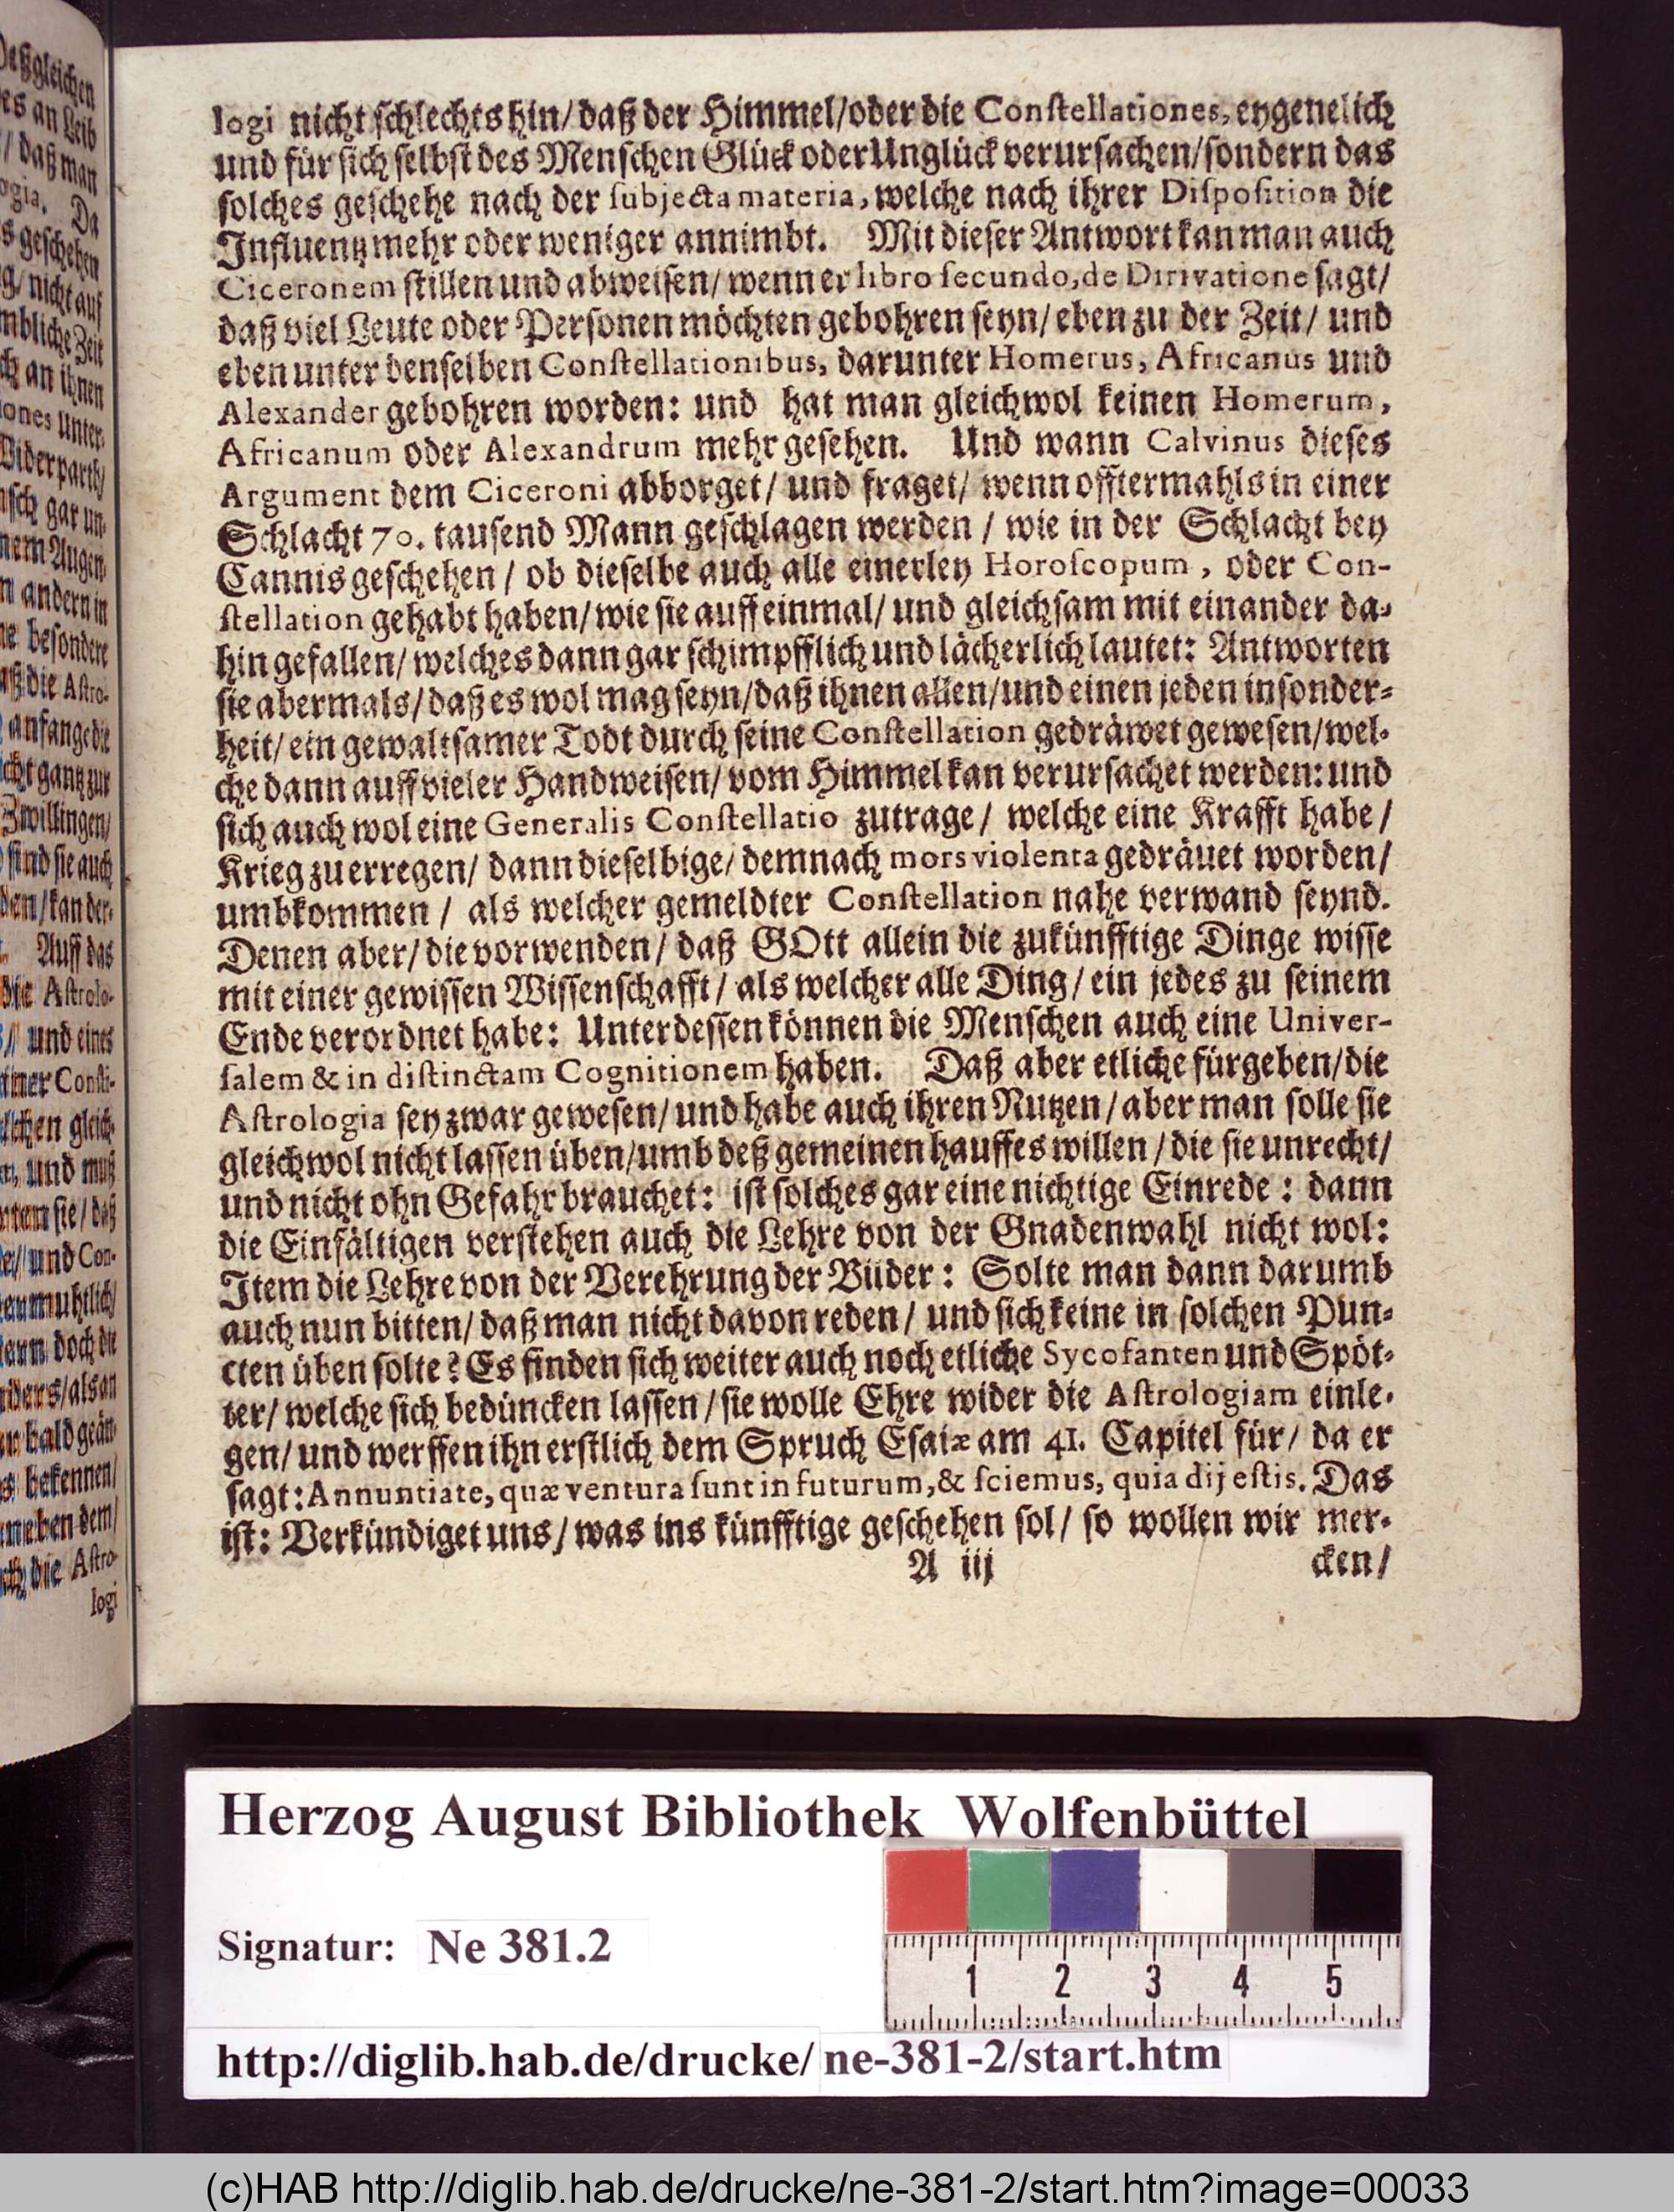 logi nicht ſchlechts hin/ daß der Himmel/oder die Conſtellationes, eygenelich
und für ſich ſelbſt des Menſchen Glück oder Unglück verurſachen/ſondern das
ſolches geſchehe nach der ſubjecta materia, welche nach ihrer Diſpoſition die
Influentz mehr oder weniger annimbt. Mit dieſer Antwort kan man auch
Ciceronem ſtillen und abweiſen/ wenn er libro ſecundo, de Dirivatione ſagt/
daß viel Leute oder Perſonen möchten gebohren ſeyn/ eben zu der Zeit/ und
eben unter denſelben Conſtellationibus, darunter Homerus, Africanus und
Alexander gebohren worden: und hat man gleichwol keinen Homerum,
Africanum oder Alexandrum mehr geſehen. Und wann Calvinus dieſes
Argument dem Ciceroni abborget/ und fraget/ wenn offtermahls in einer
Schlacht 70. tauſend Mann geſchlagen werden / wie in der Schlacht bey
Cannis geſchehen / ob dieſelbe auch alle einerley Horoſcopum, oder Con-
ſtellation gehabt haben/ wie ſie auff einmal/ und gleichſam mit einander da-
hin gefallen/ welches dann gar ſchimpfflich und lächerlich lautet: Antworten
ſie abermals/ daß es wol mag ſeyn/daß ihnen allen/und einen jeden inſonder-
heit/ ein gewaltſamer Todt durch ſeine Conſtellation gedräwet geweſen/wel-
che dann auff vieler Handweiſen/ vom Himmel kan verurſachet werden: und
ſich auch wol eine Generalis Conſtellatio zutrage/ welche eine Krafft habe/
Krieg zu erregen/ dann dieſelbige/ demnach mors violenta gedräuet worden/
umbkommen / als welcher gemeldter Conſtellation nahe verwand ſeynd.
Denen aber/ die vorwenden/ daß GOtt allein die zukünfftige Dinge wiſſe
mit einer gewiſſen Wiſſenſchafft/ als welcher alle Ding/ ein jedes zu ſeinem
Ende verordnet habe: Unterdeſſen können die Menſchen auch eine Univer-
ſalem & in diſtinctam Cognitionem haben. Daß aber etliche fürgeben/die
Aſtrologia ſey zwar geweſen/ und habe auch ihren Nutzen/ aber man ſolle ſie
gleichwol nicht laſſen üben/umb deß gemeinen hauffes willen / die ſie unrecht/
und nicht ohn Gefahr brauchet: iſt ſolches gar eine nichtige Einrede: dann
die Einfältigen verſtehen auch die Lehre von der Gnadenwahl nicht wol:
Item die Lehre von der Verehrung der Bilder: Solte man dann darumb
auch nun bitten/ daß man nicht davon reden/ und ſich keine in ſolchen Pun-
cten üben ſolte? Es finden ſich weiter auch noch etliche Sycofanten und Spöt-
ter/ welche ſich bedüncken laſſen/ ſie wolle Ehre wider die Aſtrologiam einle-
gen/ und werffen ihn erſtlich dem Spruch Eſaiæ am 41. Capitel für/ da er
ſagt: Annuntiate, quæ ventura ſunt in futurum, & ſciemus, quia dij eſtis. Das
iſt: Verkündiget uns/ was ins künfftige geſchehen ſol/ ſo wollen wir mer-
A iij cken/
Herzog August Bibliothek Wolfenbüttel
Signatur: Ne 381.2
1 2 3 4 5
http://diglib.hab.de/drucke/ ne-381-2/start.htm
(c)HAB http://diglib.hab.de/drucke/ne-381-2/start.htm?image=00033